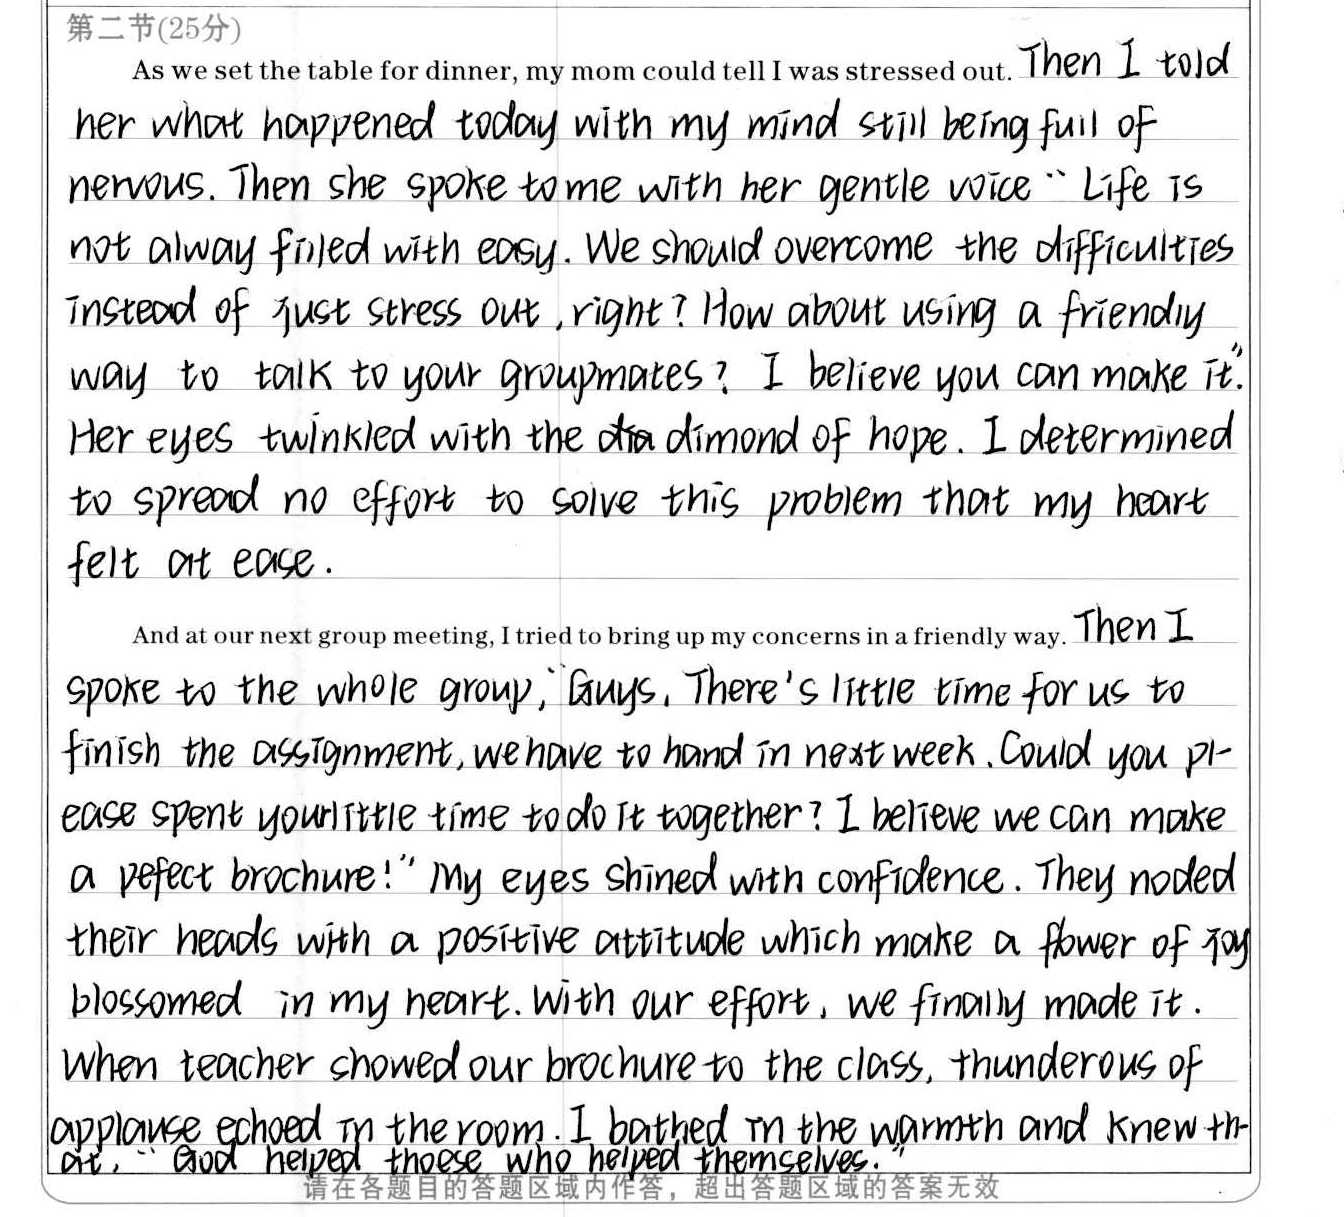 第二节(25分)
As we set the table for dinner, my mom could tell I was stressed out. Then I told
her what happened today with my mind still being full of
nervous. Then she spoke to me with her gentle voice " Life is
not alway filled with easy. We should overcome the difficulties
instead of just stress out, right? How about using a friendly
way to talk to your groupmates? I believe you can make it."
Her eyes twinkled with the dimond of hope. I determined
to spread no effort to solve this problem that my heart
felt at ease.
And at our next group meeting, I tried to bring up my concerns in a friendly way. Then I
spoke to the whole group, "Guys, There's little time for us to
finish the assignment, we have to hand in next week. Could you pl-
ease spent your little time to do it together? I believe we can make
a pefect brochure!" My eyes shined with confidence. They noded
their heads with a positive attitude which make a flower of joy
blossomed in my heart. With our effort, we finally made it.
When teacher showed our brochure to the class, thunderous of
applause echoed in the room. I bathed in the warmth and knew th-
at, " God helped thoese who helped themselves."
请在各题目的答题区域内作答，超出答题区域的答案无效